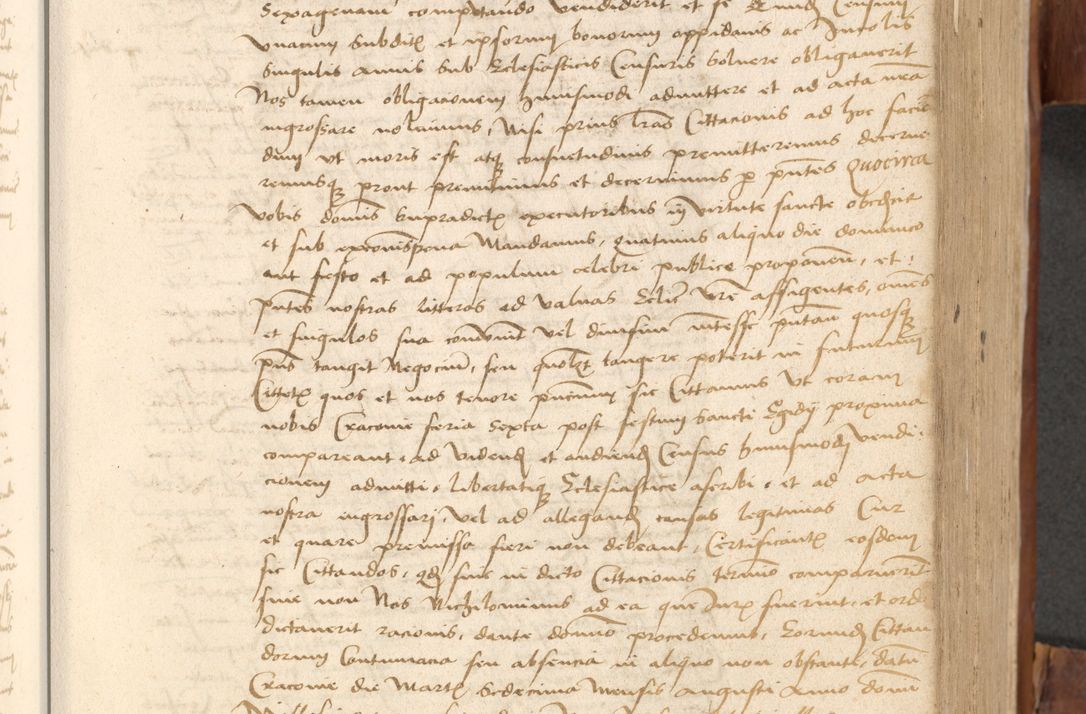 Sexagenam computando vendiderit et se eundem Censum
vnacum subditis et ipsorum bonorum oppidanis ac Incolis
singulis annis sub Ecclesiasticis Censuris soluere obligauerit
Nos tamen obligacionem huiusmodi admittere et ad acta nra
ingrossare noluimus, Nisi prius lras Cittacionis ad hoc facien
dum vt moris est atq consuetudinis premitteremus decerne
remusq prout premittimus et decernimus p pntes Quocirca
vobis dominis supradictis executoribus in virtute sancte obedie
et sub excoispena Mandamus, quatinus aliquo die dominico
aut festo et ad populum celebri publice proponen, et
pntes nostras litteras ad valuas Eccliae vre affigentes, omes
et singulos sua coniunctim vel diuisim interesse putan quosq
pns tangit Negocium, seu quomolibet tangere poterit in futurum
Cittetis quos et nos tenore pncium sic Cittamus vt coram
nobis Cracouie feria sexta post festum Sancti Egidij proxima
compareant, ad videndum et audiendum Census huiusmodi vendi
cionem admitti, libertatiq Ecclesiastice ascribi, et ad acta
nostra ingrossari, vel ad allegandum causas legitimas Cur
et quare premissa fieri non debeant, Certificantes eosdem
sic Cittandos, qd siue in dicto Cittacionis termino comparuerint
siue non Nos Nichilominus ad ea que Juris fuerint, et ordo
dictauerit racionis, dante domino procedemus, Eorundem Cittan
dorum Contumacia seu absencia in aliquo non obstante, datum
Cracouie die Martis Sedecima mensis augusti Anno domini